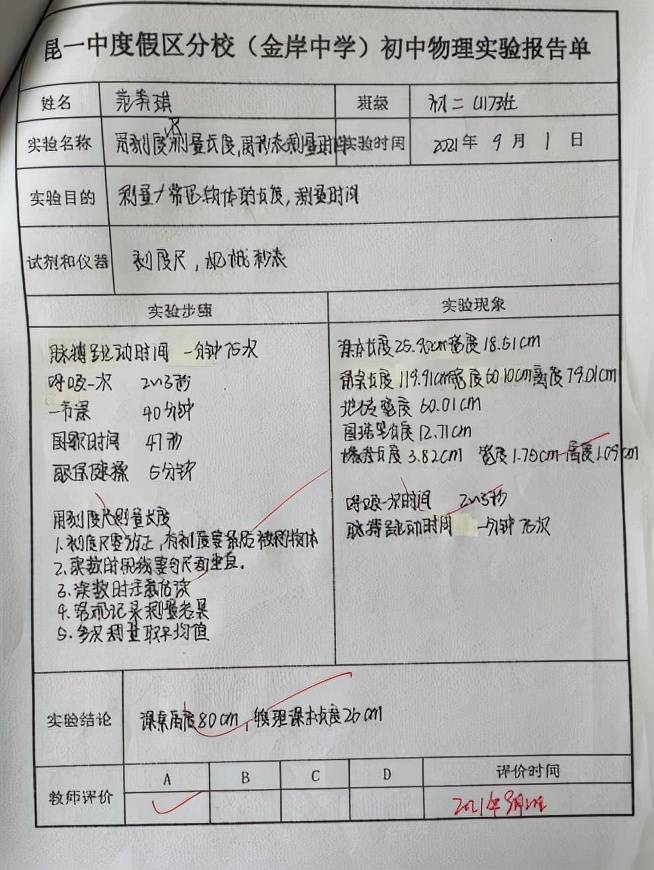 昆一中度假区分校（金岸中学）初中物理实验报告单
姓名 班级 初二 班
实验名称 用刻度尺测量长度,用秒表测量时间 实验时间 2021年 9 月 1 日
实验目的 测量 常见物体的长度,测量时间
试剂和仪器 刻度尺,机械秒表
实验步骤
脉搏跳动时间 一分钟75次
呼吸一次 2~3秒
一节课 40分钟
国歌时间 47秒
眼保健操 5分钟
用刻度尺测量长度
1.刻度尺要放正,有刻度要紧贴被测物体
2.读数时视线要与尺面垂直.
3.读数时注意估读
4.
5.多次测量取平均值
实验现象
课本长度25.92cm宽度18.51cm
课桌长度119.91cm宽度60.10cm高度79.01cm
地砖宽度60.01cm
长度12.71cm
橡皮长度3.82cm 宽度1.70cm 厚度1.09cm
呼吸一次时间 2~3秒
脉搏跳动时间 一分钟75次
实验结论 课桌高度80cm,物理课本长度26cm
教师评价 A B C D 评价时间
2021年9月